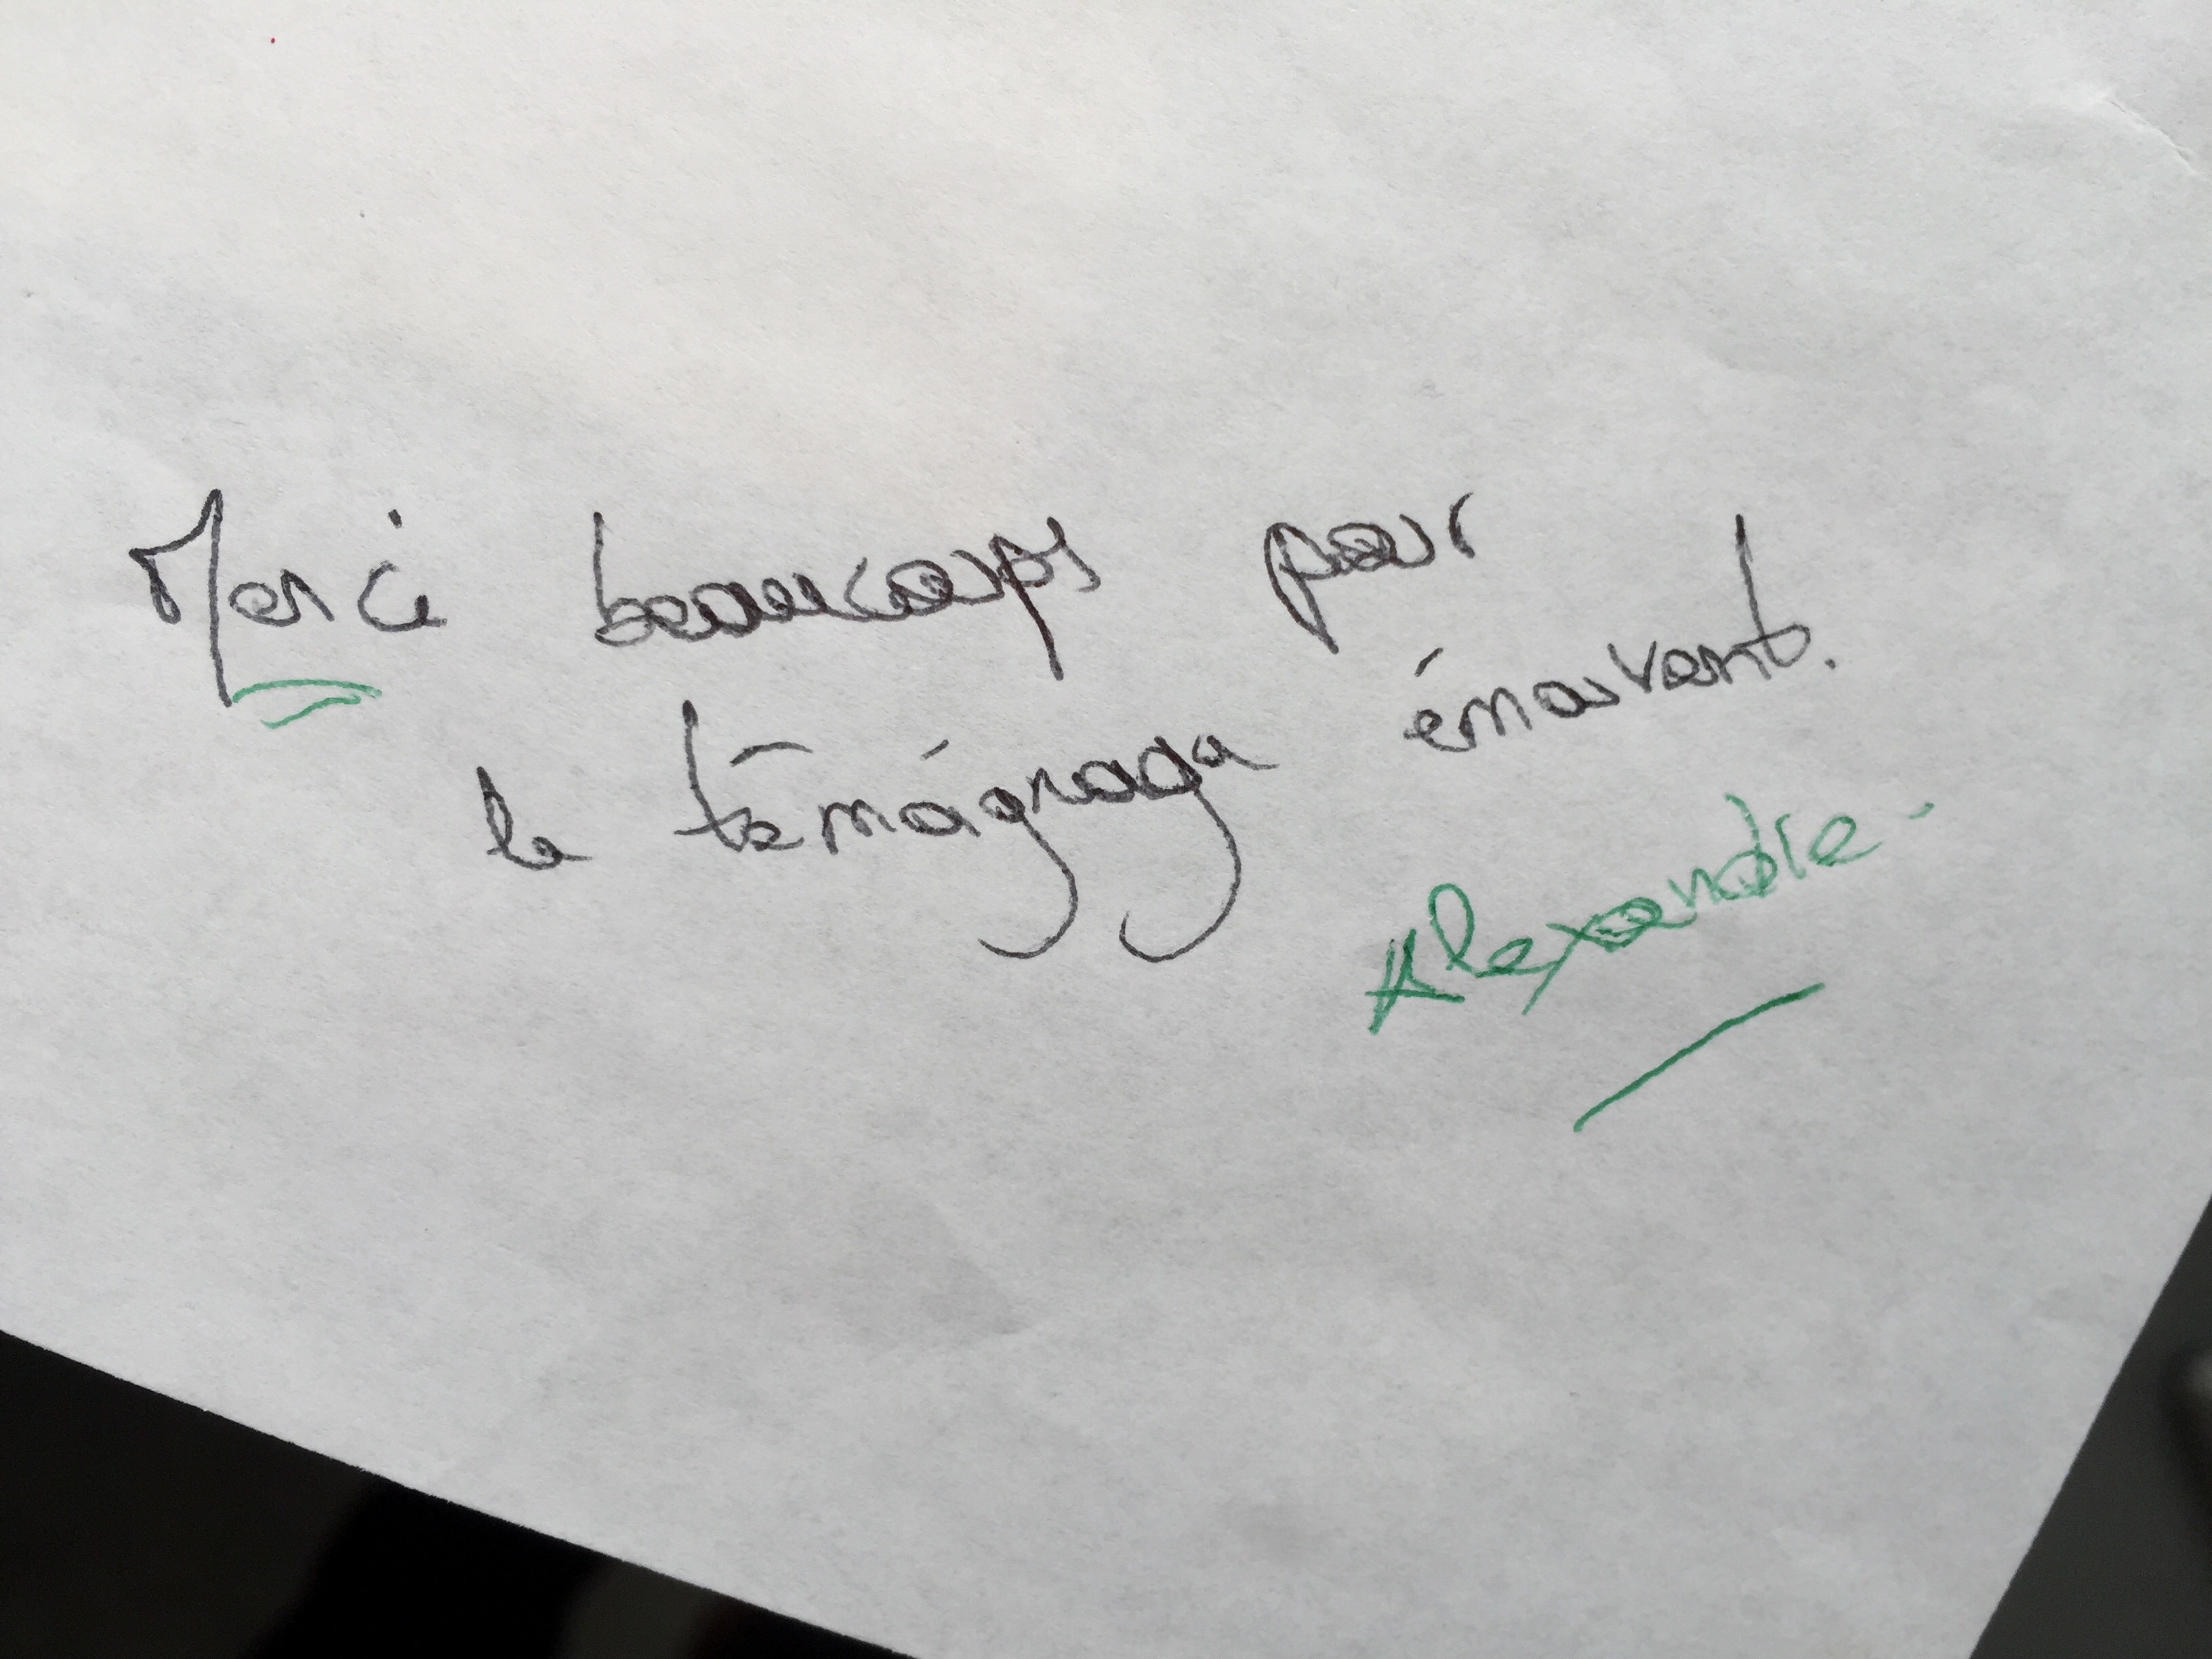 Merci beaucoups pour
le témoignage émouvant.
Alexandre.